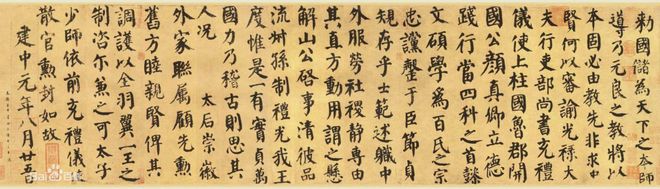 敕國儲為天下之本師
導乃元良之教將以
本固必由教先非求中
賢何以審諭光祿大
夫行吏部尚書充禮
儀使上柱國魯郡開
國公顏真卿立德
踐行當四科之首懿
文碩學為百氏之宗
忠讜罄于臣節貞
規存乎士範述職中
外服勞社稷靜專由
其直方動用謂之懸
解山公啓事清彼品
流叔孫制禮光我王
度惟是一有實貞萬
國力乃稽古則思其
人況 太后崇徽
外家聯屬顧先勳
舊方睦親賢俾其
調護以全羽翼一王之
制咨爾兼之可太子
少師依前充禮儀使
散官勳封如故
建中元年八月廿
Bai百科